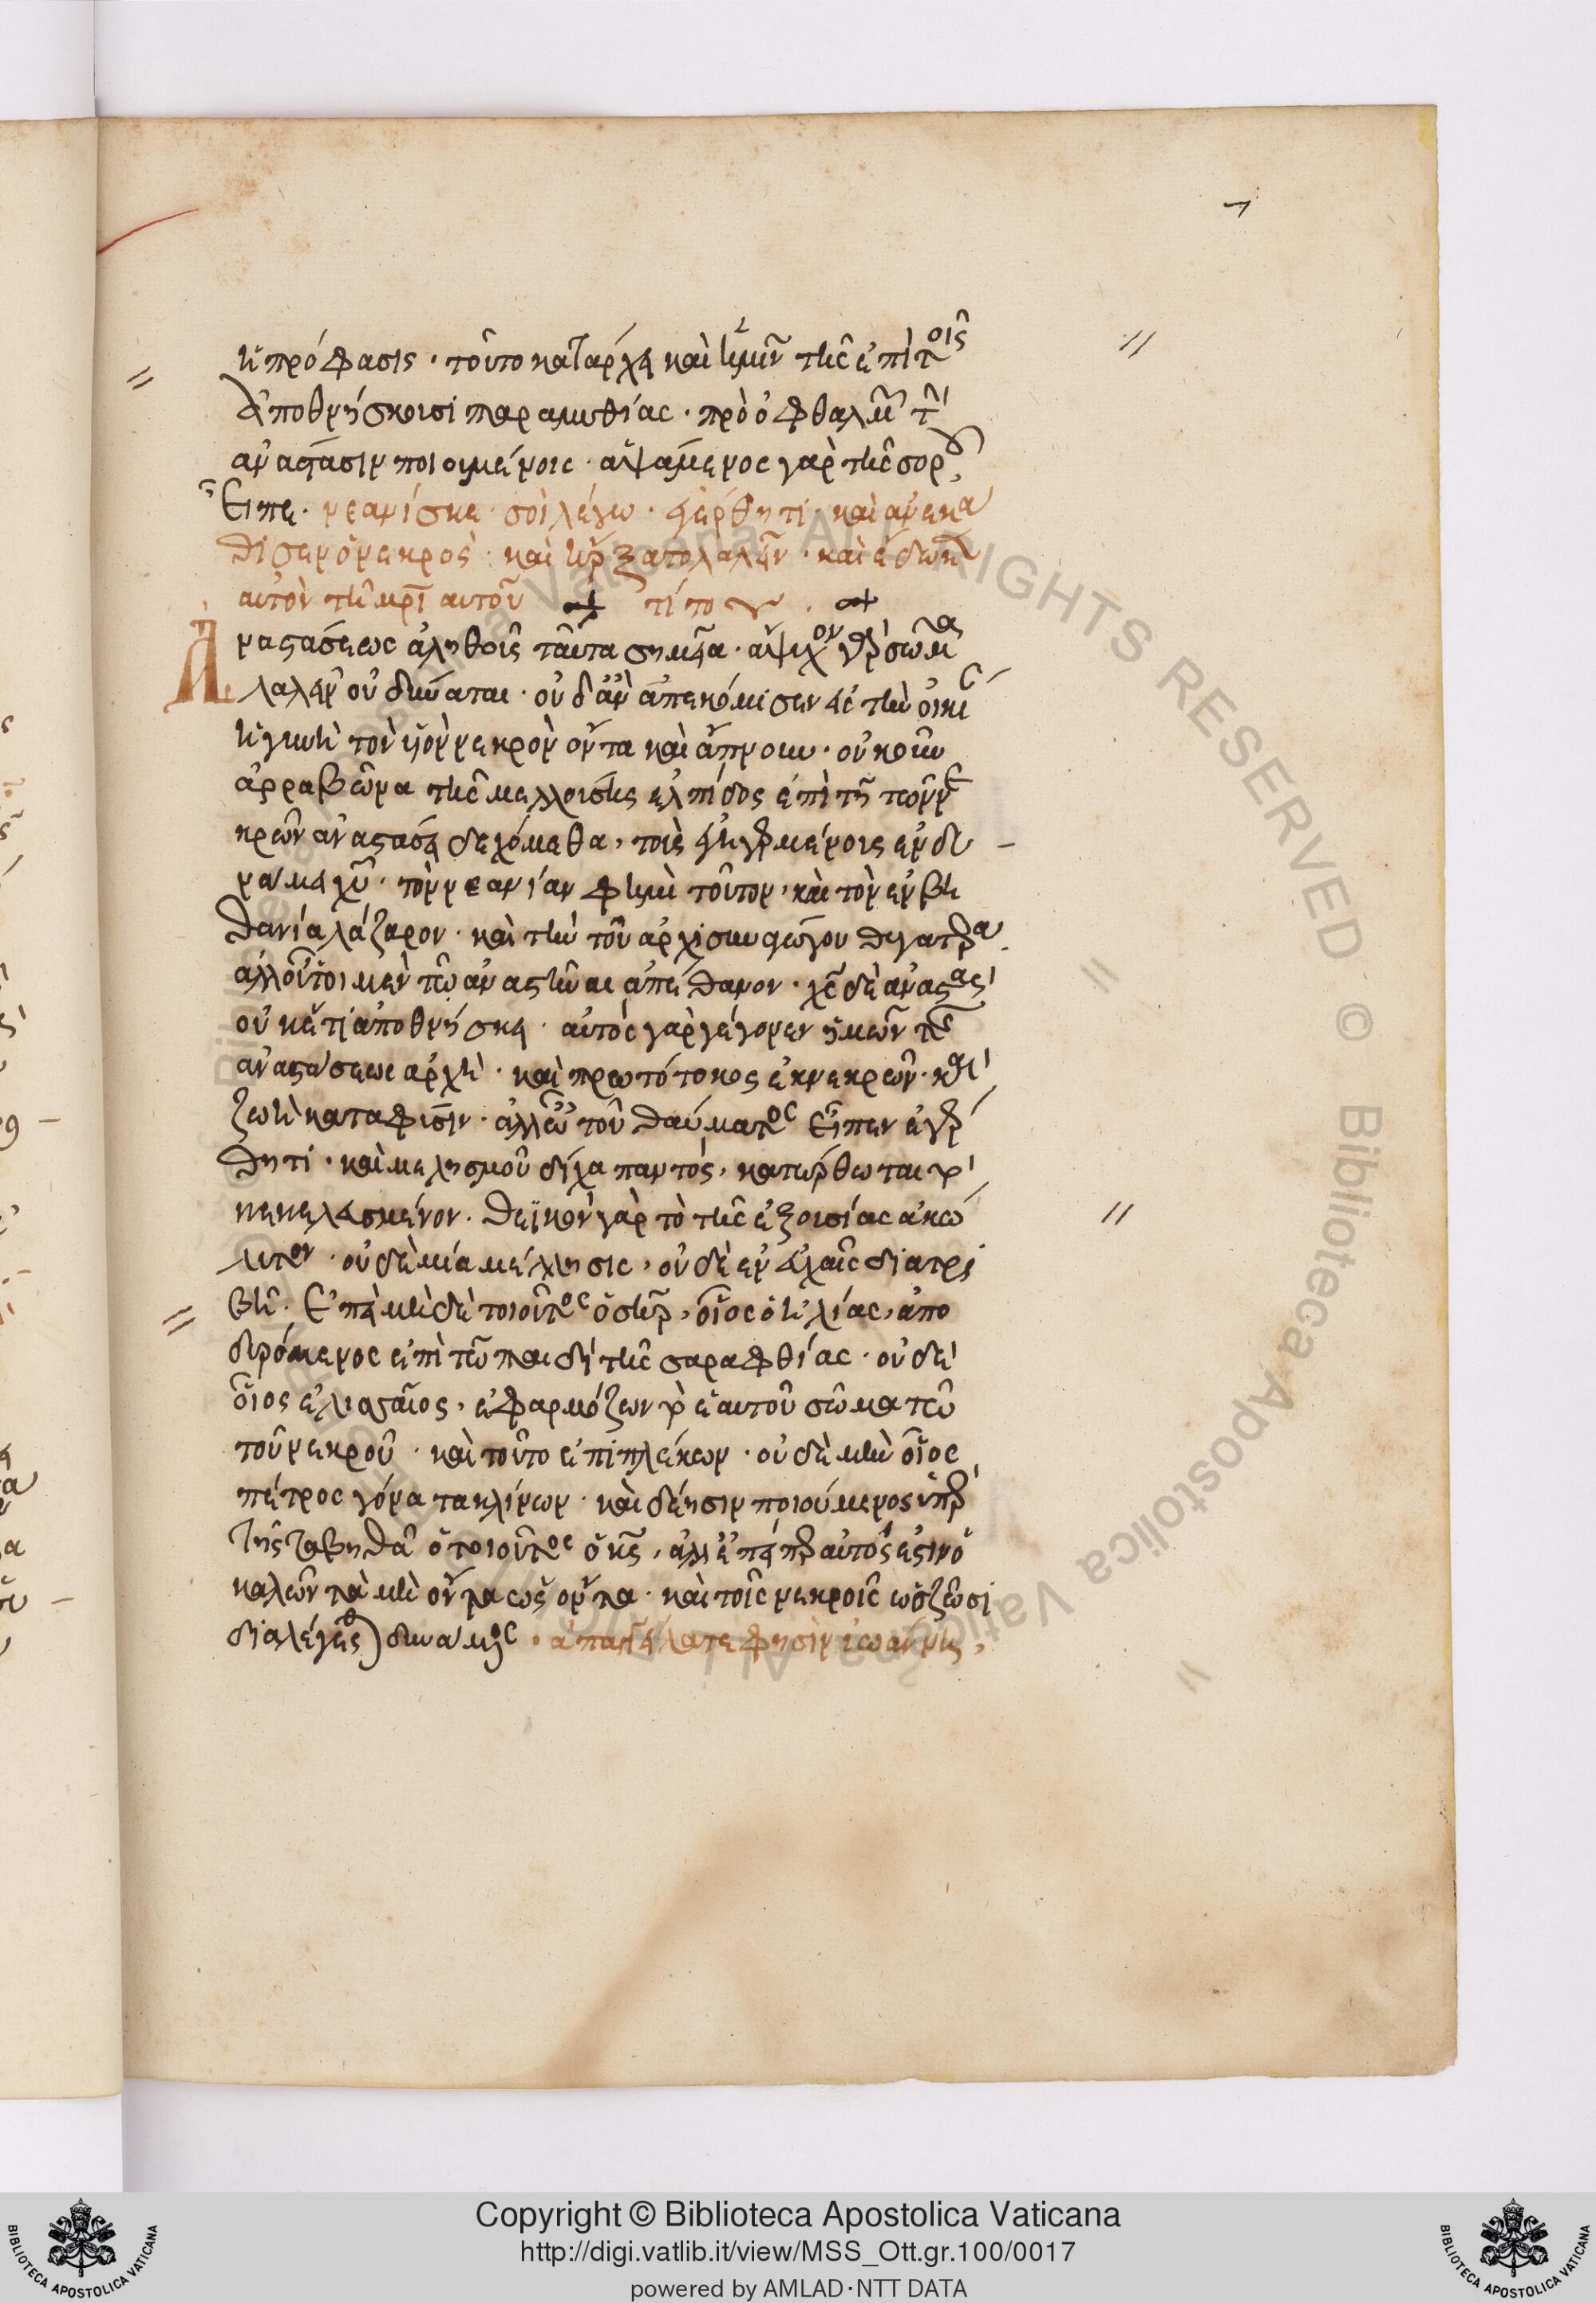 7
ἡ πρόφασις · τοῦτο κατάρχει καὶ ἡμῖν τῆς ἐπὶ τοῖς
ἀποθνήσκουσι παραμυθίας · πρὸ ὀφθαλμῶν τὴν
ἀνάστασιν ποιουμένοις · ἁψάμενος γὰρ τῆς σοροῦ
εἶπε · νεανίσκε σοὶ λέγω · ἐγέρθητι · καὶ ἀνεκά
θισεν ὁ νεκρὸς · καὶ ἤρξατο λαλεῖν · καὶ ἔδωκεν
αὐτὸν τῇ μρὶ αὐτοῦ
ἀναστάσεως ἀληθοῦς ταῦτα σημεῖα · ἄψυχον γὰρ σῶμα
λαλεῖν οὐ δύναται · οὐδ' ἂν ἀπεκόμισεν εἰς τὴν οἰκίαν
ἡ γυνὴ τὸν υἱὸν νεκρὸν ὄντα καὶ ἄπνουν · οὐκοῦν
ἀρραβῶνα τῆς μελλούσης ἐλπίδος ἐπὶ τῇ τῶν νε
κρῶν ἀναστάσει δεχόμεθα, τοὺς ἐγηγερμένους ἐν δυ
νάμει χυ · τὸν νεανίαν φημὶ τοῦτον, καὶ τὸν ἐν βη
θανία λάζαρον · καὶ τὴν τοῦ ἀρχισυναγώγου θυγατέρα
ἀλλ' οὗτοι μὲν τῷ ἀναστῆναι ἀπέθανον · χς δὲ ἀναστὰς
οὐκέτι ἀποθνήσκει · αὐτὸς γὰρ γέγονεν ἡμῶν τῆς
ἀναστάσεως ἀρχὴ · καὶ πρωτότοκος ἐκ νεκρῶν · καὶ
ζωὴ κατὰ φύσιν · ἀλλ' ὢ τοῦ θαύματος εἶπεν ἐγέρ
θητι · καὶ μελησμοῦ δίχα παντός, κατώρθωται τὸ
κεκελευσμένον · θεϊκὸν γὰρ τὸ τῆς ἐξουσίας ἀκώ
λυτον · οὐδεμία μέλλησις, οὐδὲ ἐν εὐχαῖς διατρι
βὴ · ἐπεὶ μὴ δὲ τοιοῦτος ὁ σωτὴρ, οἷος ὁ ἠλίας, ἀπο
δυρόμενος ἐπὶ τῷ παιδὶ τῆς σαραφθίας · οὐδὲ
οἷος ἐλισσαῖος, ἐφαρμόζων τὸ ἑαυτοῦ σῶμα τῷ
τοῦ νεκροῦ · καὶ τοῦτο ἐπιπλέκων · οὐδὲ μὴν οἷος
πέτρος γόνατα κλίνων · καὶ δέησιν ποιούμενος ὑπὲρ
τῆς ταβηθᾶ οὐ τοιοῦτος ὁ κς, ἀλλ' ἐπείπερ αὐτός ἐστιν ὁ
καλῶν τὰ μὴ ὄντα ὡς ὄντα · καὶ τοῖς νεκροῖς ὡς ζῶσι
διαλέγεσθαι δυνάμενος · ἀπαγγείλατε φησὶν ἰωάννης,